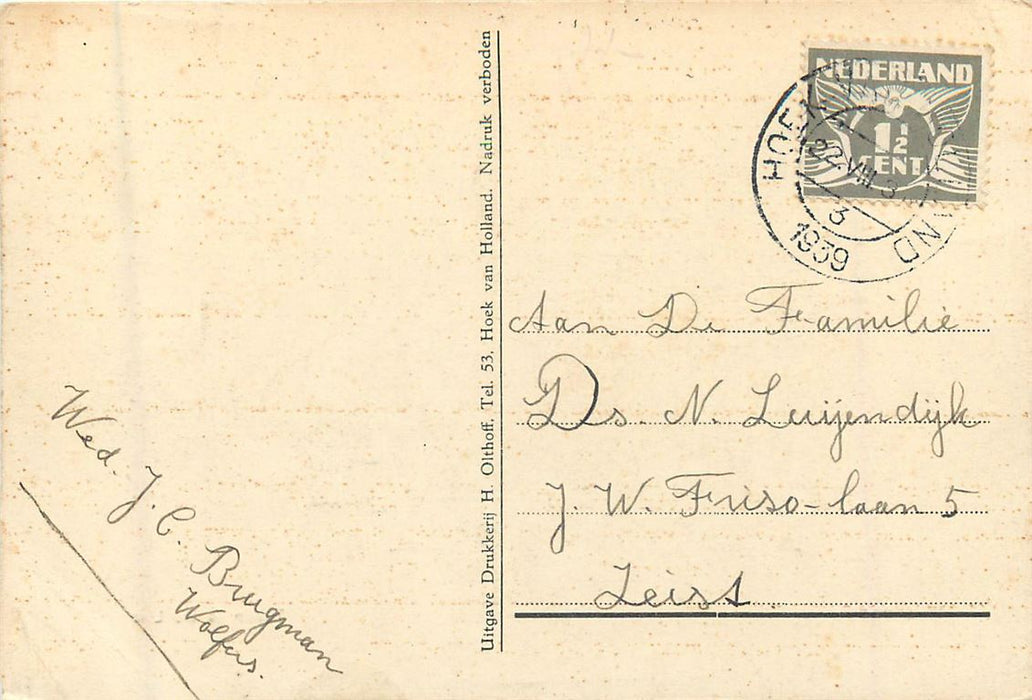 Uitgave Drukkerij H. Olthoff, Tel. 53, Hoek van Holland. Nadruk verboden
NEDERLAND
1½
CENT
HOEK
3
1939
Aan De Familie
Ds. N. Luijendijk
J. W. Friso-laan 5
Zeist
Wed. J. C. Brugman
Wolfers.